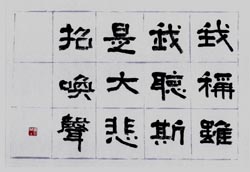 我稱雖
我聽斯
是大悲
招喚聲